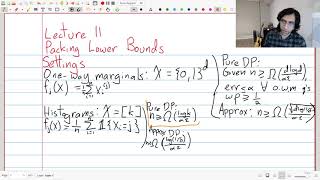 Lecture 11
Packing Lower Bounds
Settings
One-way marginals: X = {0,1}^d
f_j(X) = Σ x_i^(j)
Histograms: X = [k]
f_j(X) = 1/n Σ 1{X_i = j}
Pure DP:
n ≥ Ω(log k / αε)
Approx DP:
n ≥ Ω(log(1/δ) / αε)
Pure DP:
Given n ≥ Ω(d log d / αε)
err ≤ α ∀ o.w.m q's
wp ≥ 1/2
Approx: n ≥ Ω(√d log d / αε)